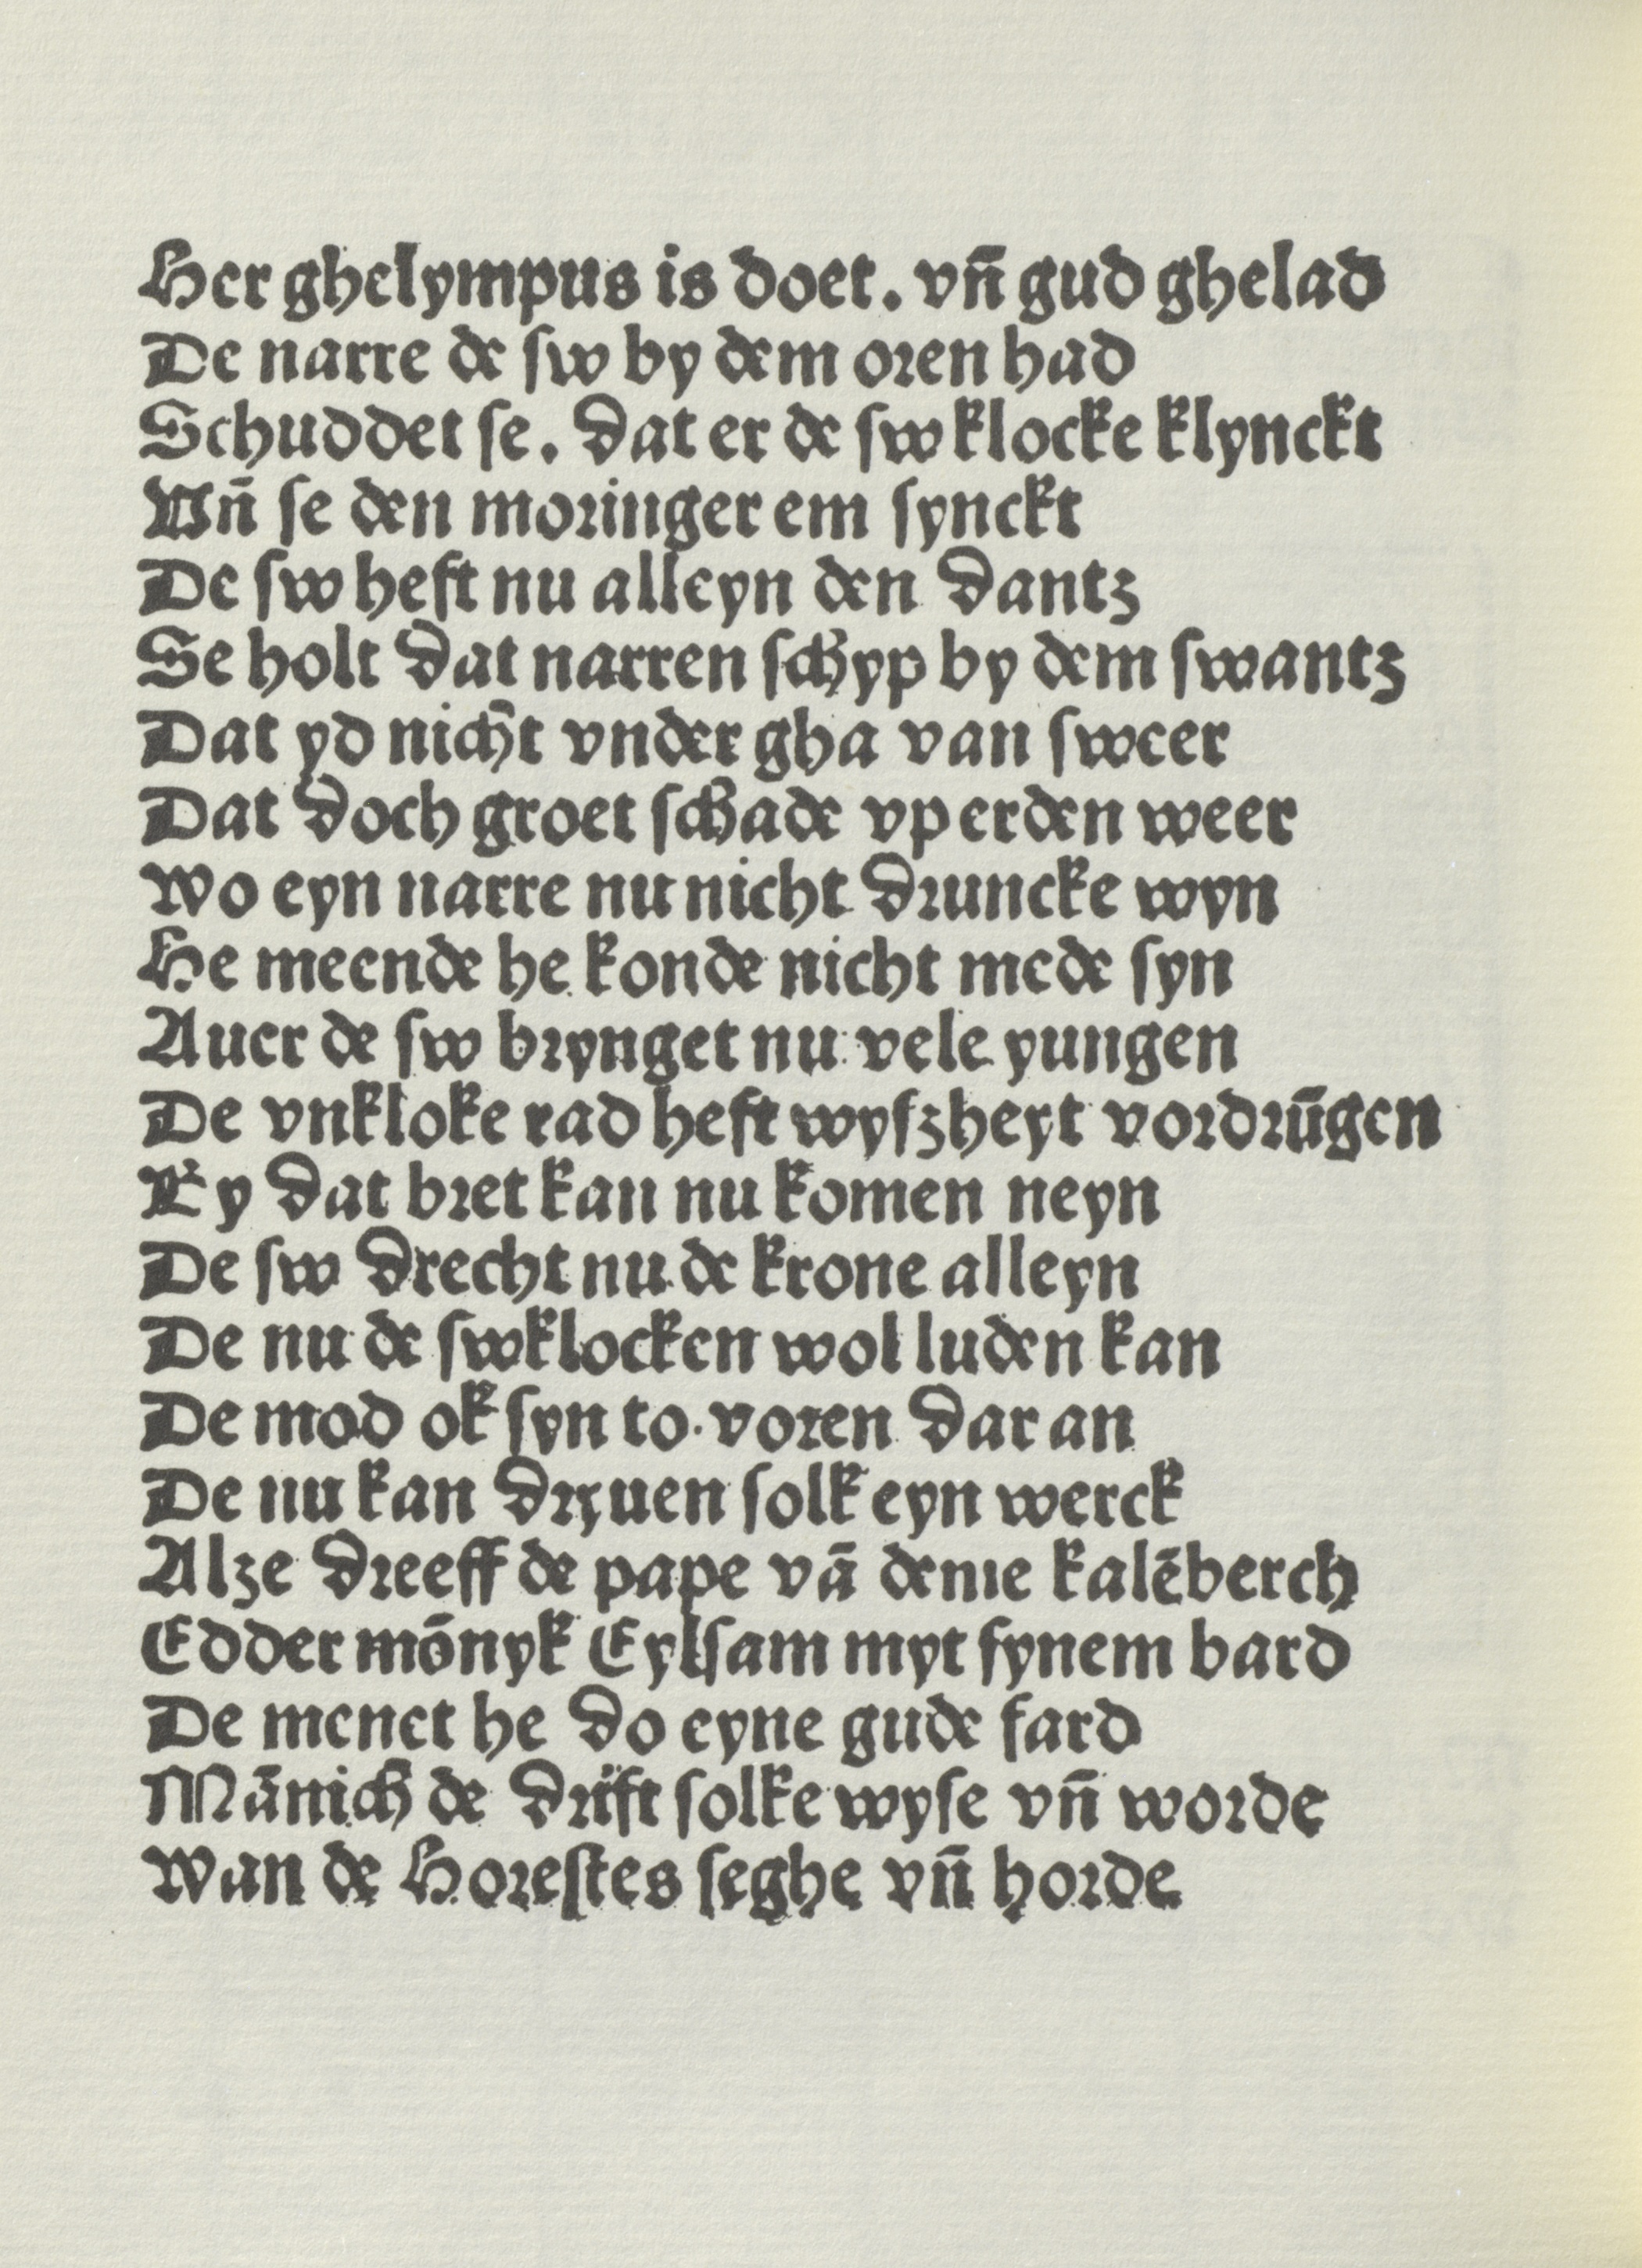 Her ghelympus is doet. vn̄ gud ghelad
De narre de sw by dem oren had
Schuddet se. dat er de sw klocke klynckt
Vn̄ se den moringer em synckt
De sw heft nu alleyn den dantz
Se holt dat narren schyp by dem swantz
Dat yd nicht vnder gha van sweer
Dat doch groet schade vp erden weer
Wo eyn narre nu nicht druncke wyn
He meende he konde nicht mede syn
Auer de sw brynget nu vele yungen
De vnkloke rad heft wyszheyt vordrūgen
Ey dat bret kan nu komen neyn
De sw drecht nu de krone alleyn
De nu de swklocken wol luden kan
De mod ok syn to voren dar an
De nu kan dryuen solk eyn werck
Alze dreeff de pape vā deme kalēberch
Edder mōnyk Eylsam myt synem bard
De menet he do eyne gude fard
Mānich de drift solke wyse vn̄ worde
Wan de Horestes seghe vn̄ horde